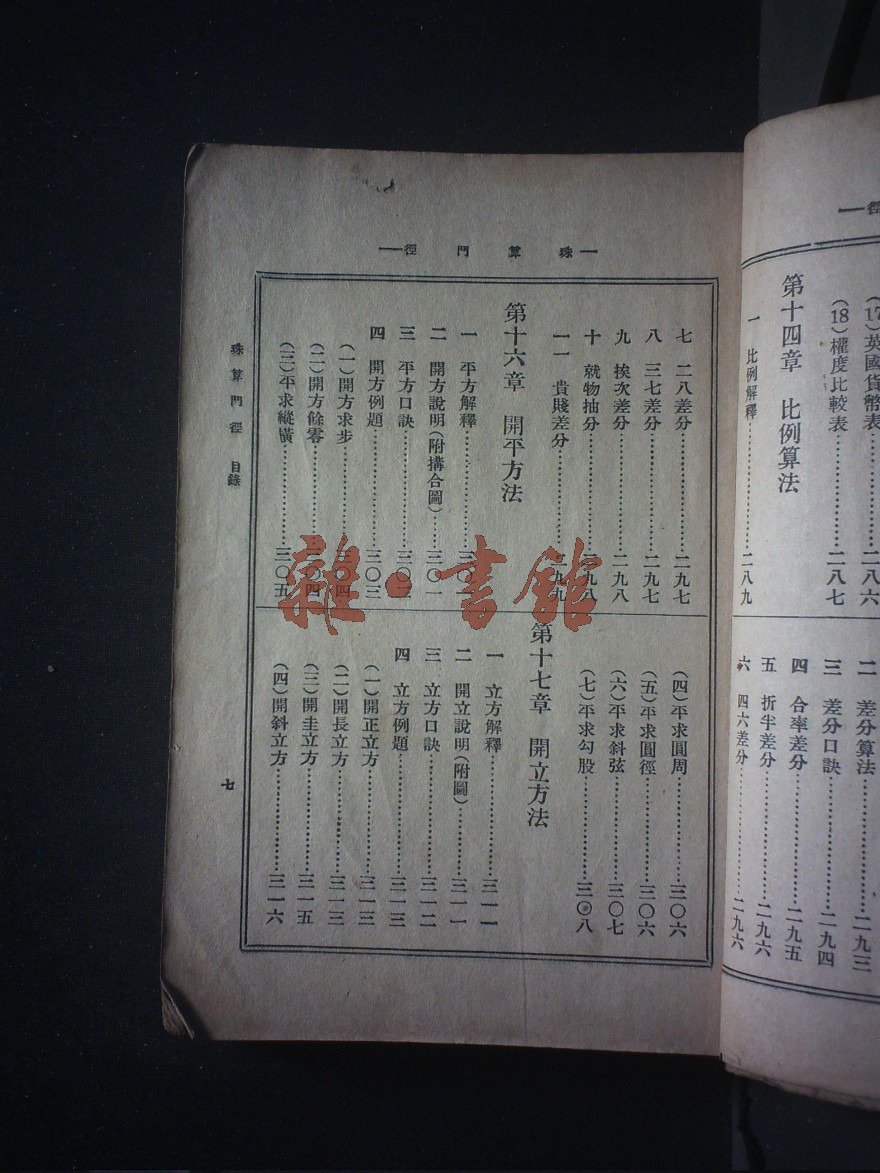 徑
(17)英國貨幣表……二八六
(18)權度比較表……二八七
第十四章 比例算法
一 比例解釋……二八九
二 差分算法……二九三
三 差分口訣……二九四
四 合率差分……二九五
五 折半差分……二九六
六 四六差分……二九六
珠算門徑
七 二八差分……二九七
八 三七差分……二九七
九 挨次差分……二九八
十 就物抽分……二九八
一一 貴賤差分……二九九
第十六章 開平方法
一 平方解釋……三〇一
二 開方說明(附搆合圖)……三〇一
三 平方口訣……三〇二
四 開方例題……三〇三
(一)開方求步……三〇四
(二)開方餘零……三〇四
(三)平求縱橫……三〇五
(四)平求圓周……三〇六
(五)平求圓徑……三〇六
(六)平求斜弦……三〇七
(七)平求勾股……三〇八
第十七章 開立方法
一 立方解釋……三一一
二 開立說明(附圖)……三一一
三 立方口訣……三一二
四 立方例題……三一三
(一)開正立方……三一三
(二)開長立方……三一三
(三)開圭立方……三一五
(四)開斜立方……三一六
珠算門徑 目錄
七
雜·書館